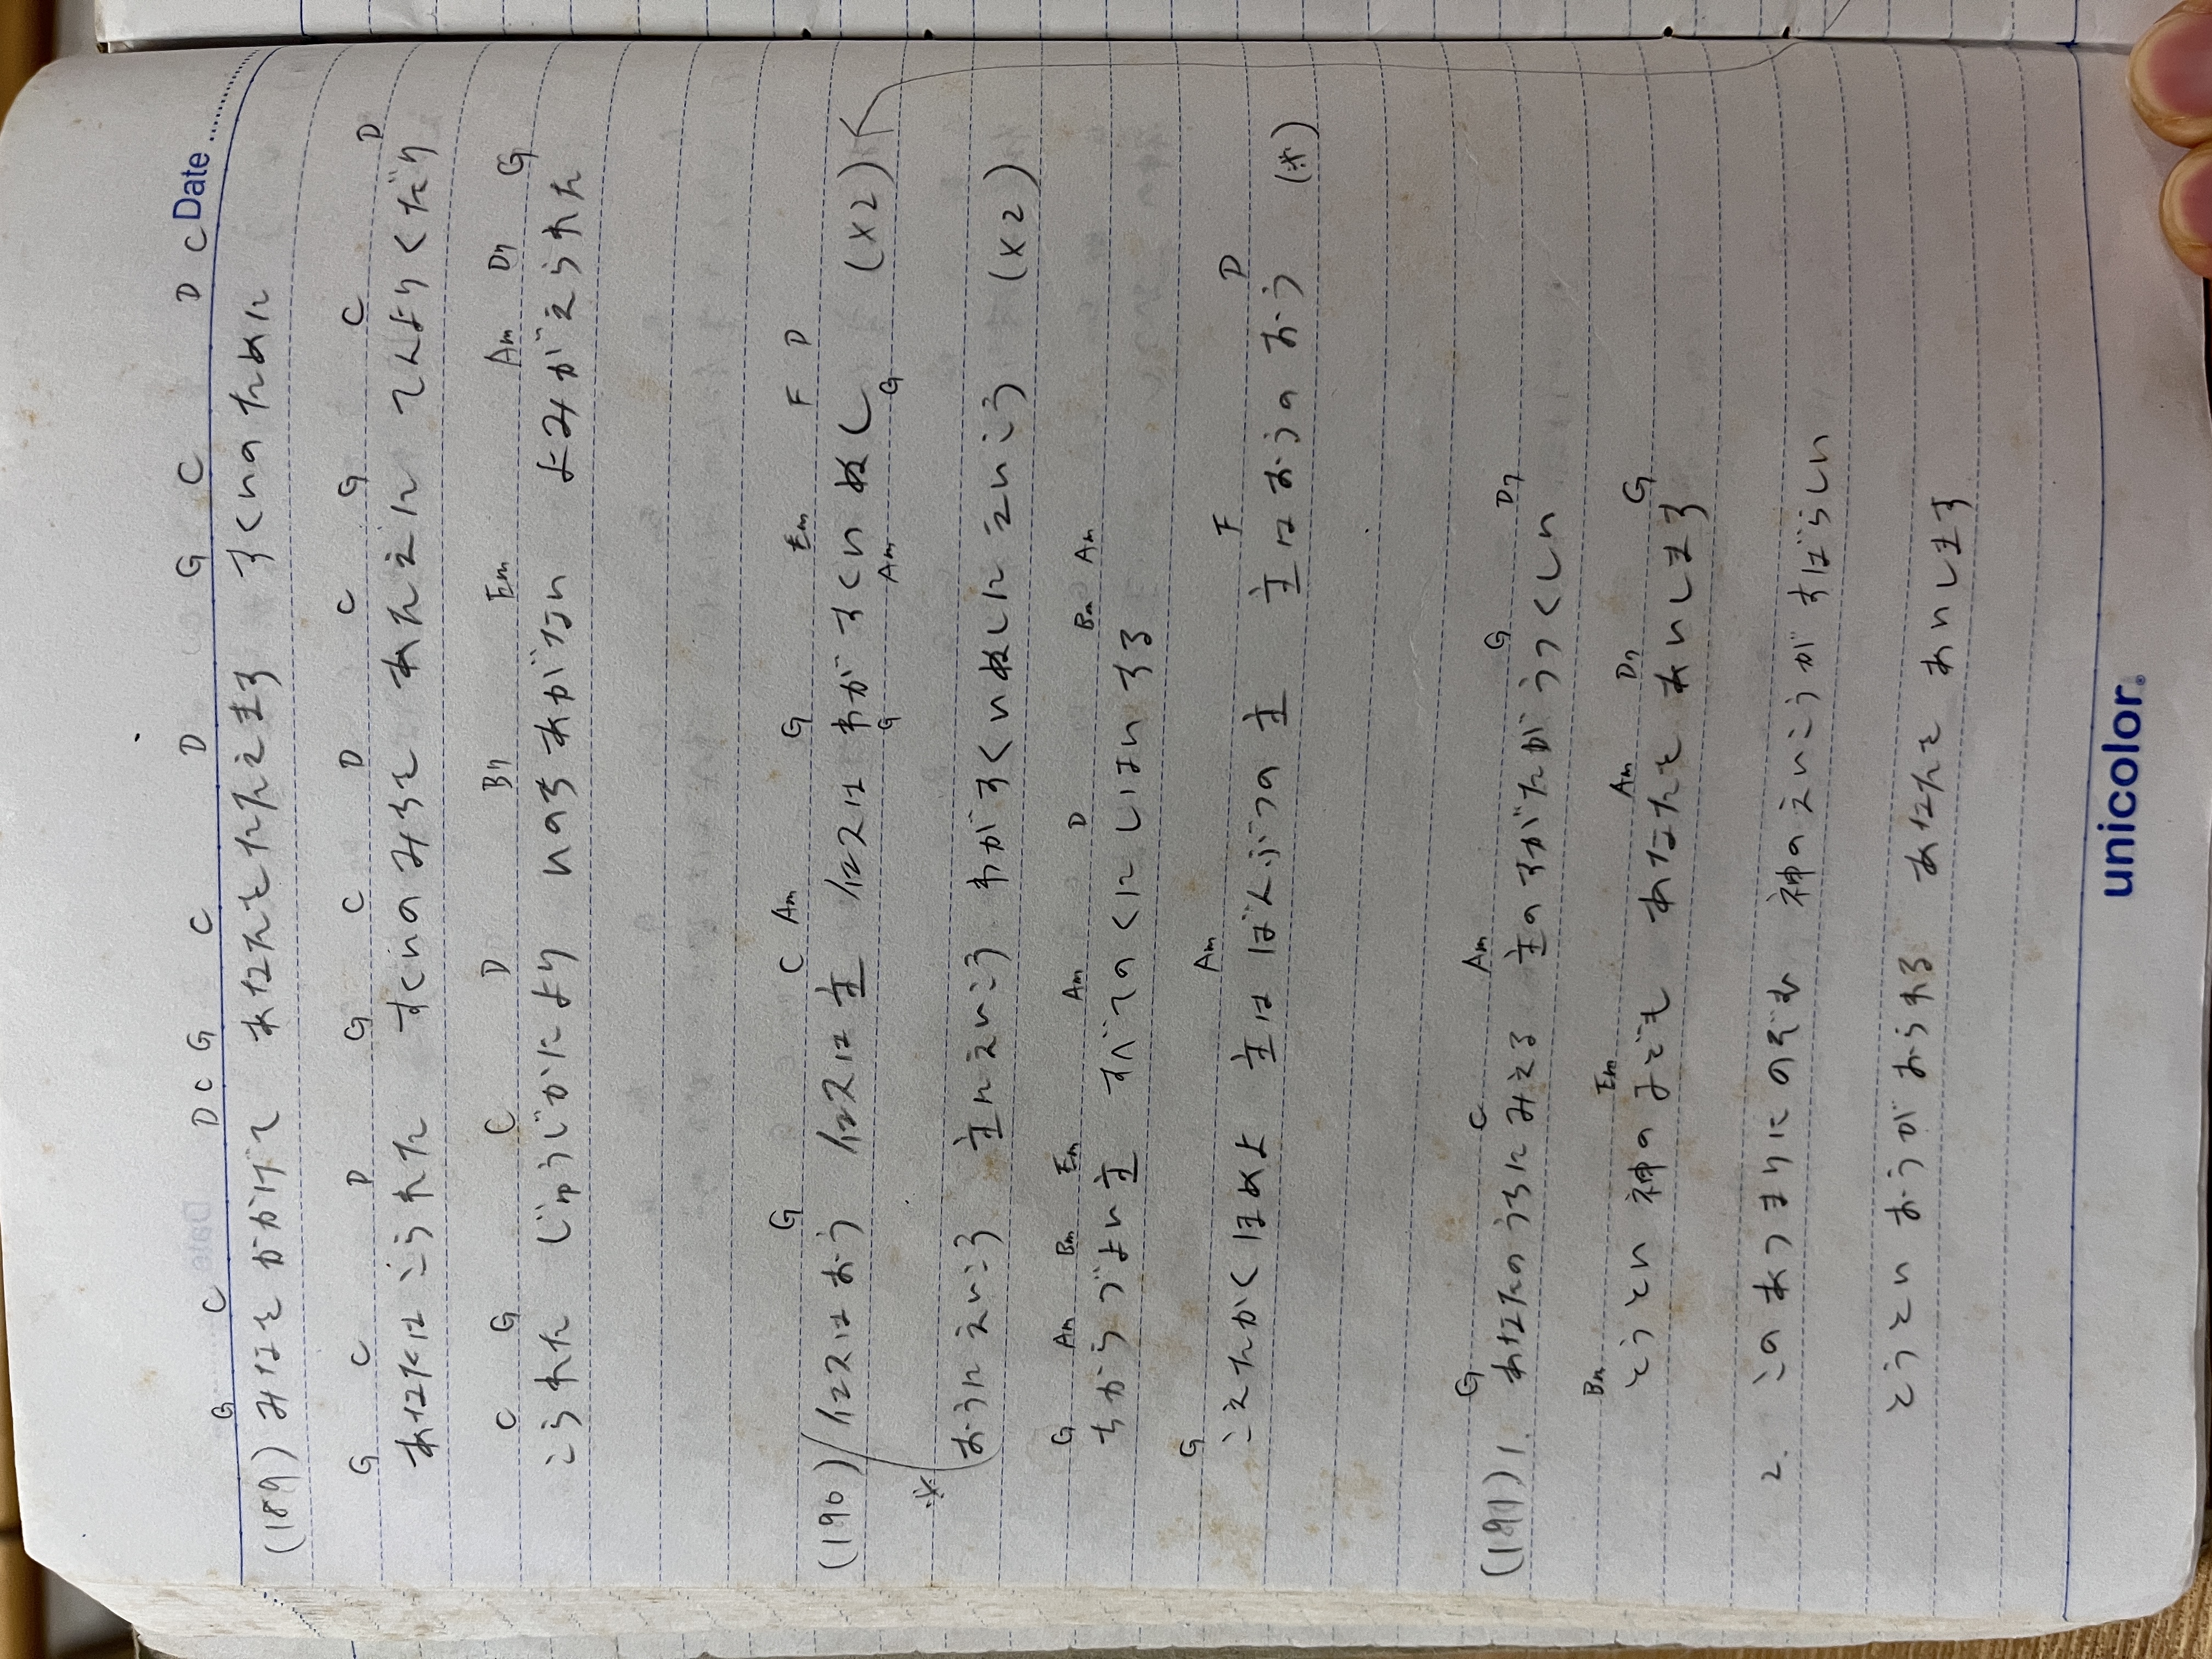 Date
G C D C G C D G C D C
(189) みなを かかげて あなたを たたえます すくいのために
G C D G C D C G C D
あなたは こられた すくいのみちを あたえに てんよりくだり
C G C D B7 Em Am D7 G
こられた じゅうじかにより いのちあがない よみがえられた
G C Am G Em F D
(190) イエスはおう イエスは主 イエスは わがすくいぬし (×2)
G Am G
※ おうにえいこう 主にえいこう わがすくいぬしにえいこう (×2)
G Am Bm Em Am D Bm Am
ちからづよい主 すべてのくにしはいする
G Am F D
こえたかくほめよ 主は ばんぶつの主 主はおうのおう (※)
G C Am G D7
(191) 1. あなたのうちにみえる 主のすがたがうつくしい
Bm Em Am D7 G
とうとい神の子ども あなたを あいします
2. このあつまりにのぞむ 神のえいこうがすばらしい
とうとい おうがおられる あなたを あいします
unicolor